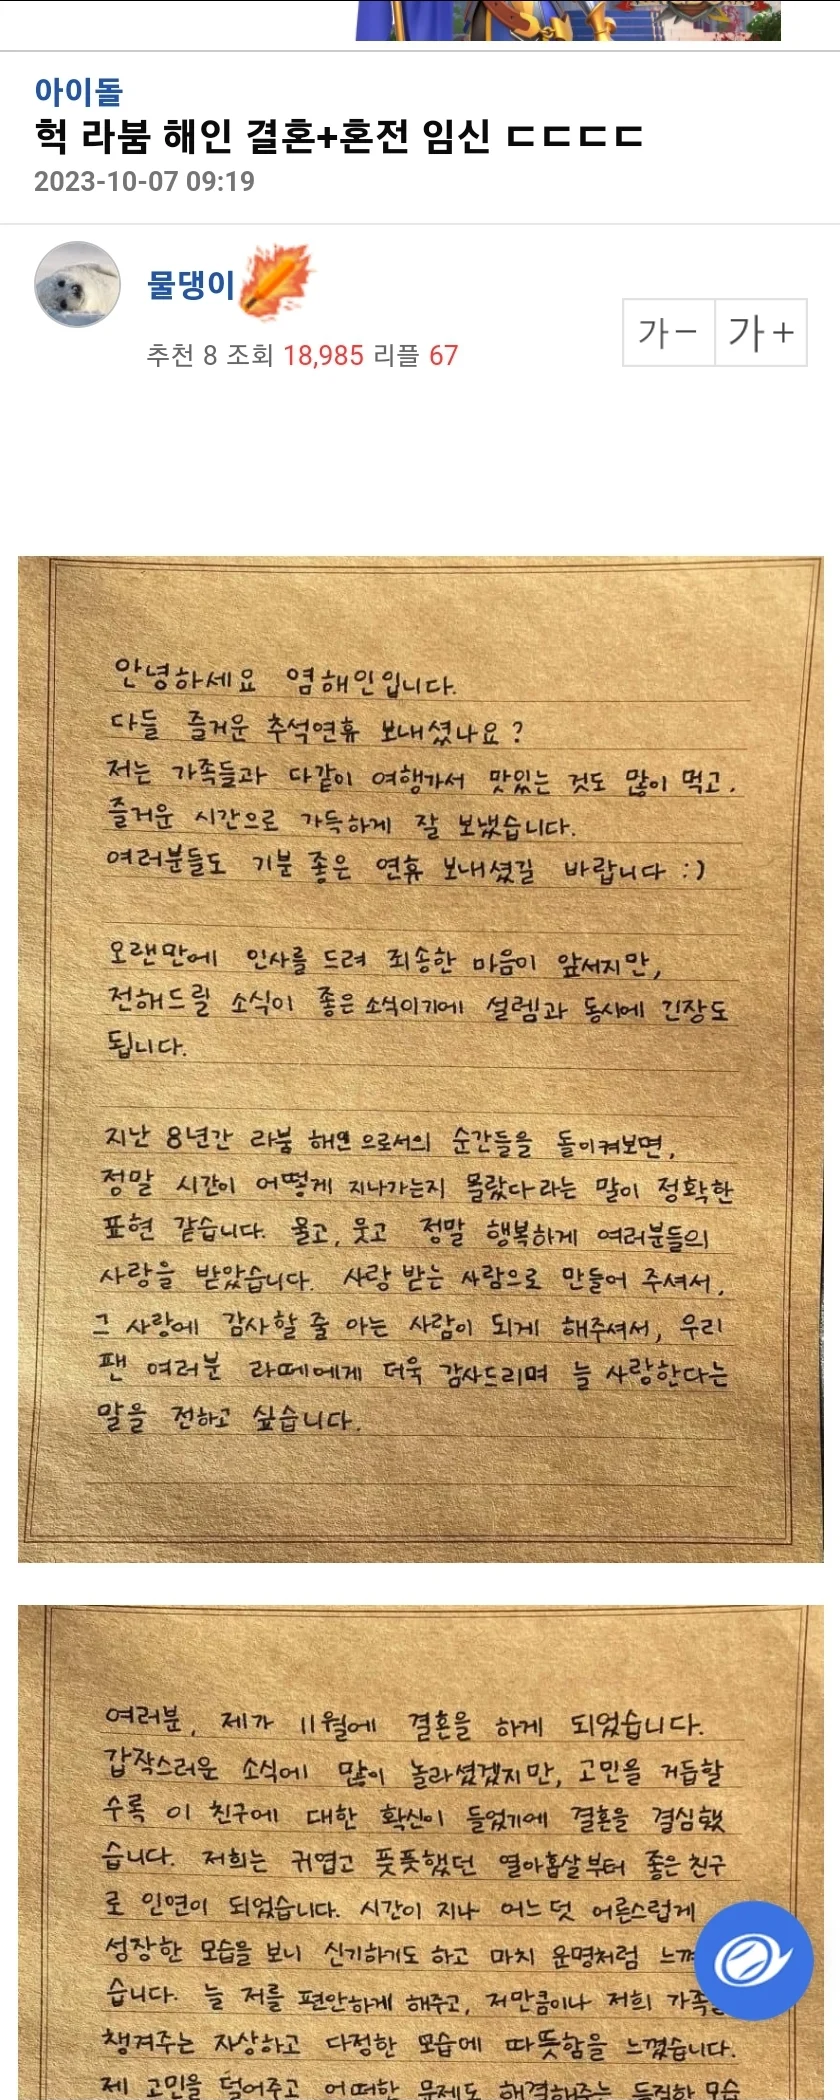 아이돌
헉 라붐 해인 결혼+혼전 임신 ㄷㄷㄷㄷ
2023-10-07 09:19
물댕이
추천 8 조회 18,985 리플 67
가- 가+
안녕하세요 염해인입니다.
다들 즐거운 추석연휴 보내셨나요?
저는 가족들과 다같이 여행가서 맛있는 것도 많이 먹고.
즐거운 시간으로 가득하게 잘 보냈습니다.
여러분들도 기분 좋은 연휴 보내셨길 바랍니다 :)
오랜만에 인사를 드려 죄송한 마음이 앞서지만,
전해드릴 소식이 좋은 소식이기에 설렘과 동시에 긴장도
됩니다.
지난 8년간 라붐 해인으로서의 순간들을 돌이켜보면,
정말 시간이 어떻게 지나가는지 몰랐다라는 말이 정확한
표현 같습니다. 울고, 웃고 정말 행복하게 여러분들의
사랑을 받았습니다. 사랑 받는 사람으로 만들어 주셔서,
그 사랑에 감사할 줄 아는 사람이 되게 해주셔서, 우리
팬 여러분 라떼에게 더욱 감사드리며 늘 사랑한다는
말을 전하고 싶습니다.
여러분, 제가 11월에 결혼을 하게 되었습니다.
갑작스러운 소식에 많이 놀라셨겠지만, 고민을 거듭할
수록 이 친구에 대한 확신이 들었기에 결혼을 결심했
습니다. 저희는 귀엽고 풋풋했던 열아홉살부터 좋은 친구
로 인연이 되었습니다. 시간이 지나 어느덧 어른스럽게
성장한 모습을 보니 신기하기도 하고 마치 운명처럼
습니다. 늘 저를 편안하게 해주고, 저만큼이나 저희
챙겨주는 자상하고 다정한 모습에 따뜻함을 느꼈습니다.
제 고민을 덜어주고 어떠한 문제도 해결해주는 듬직한 모습